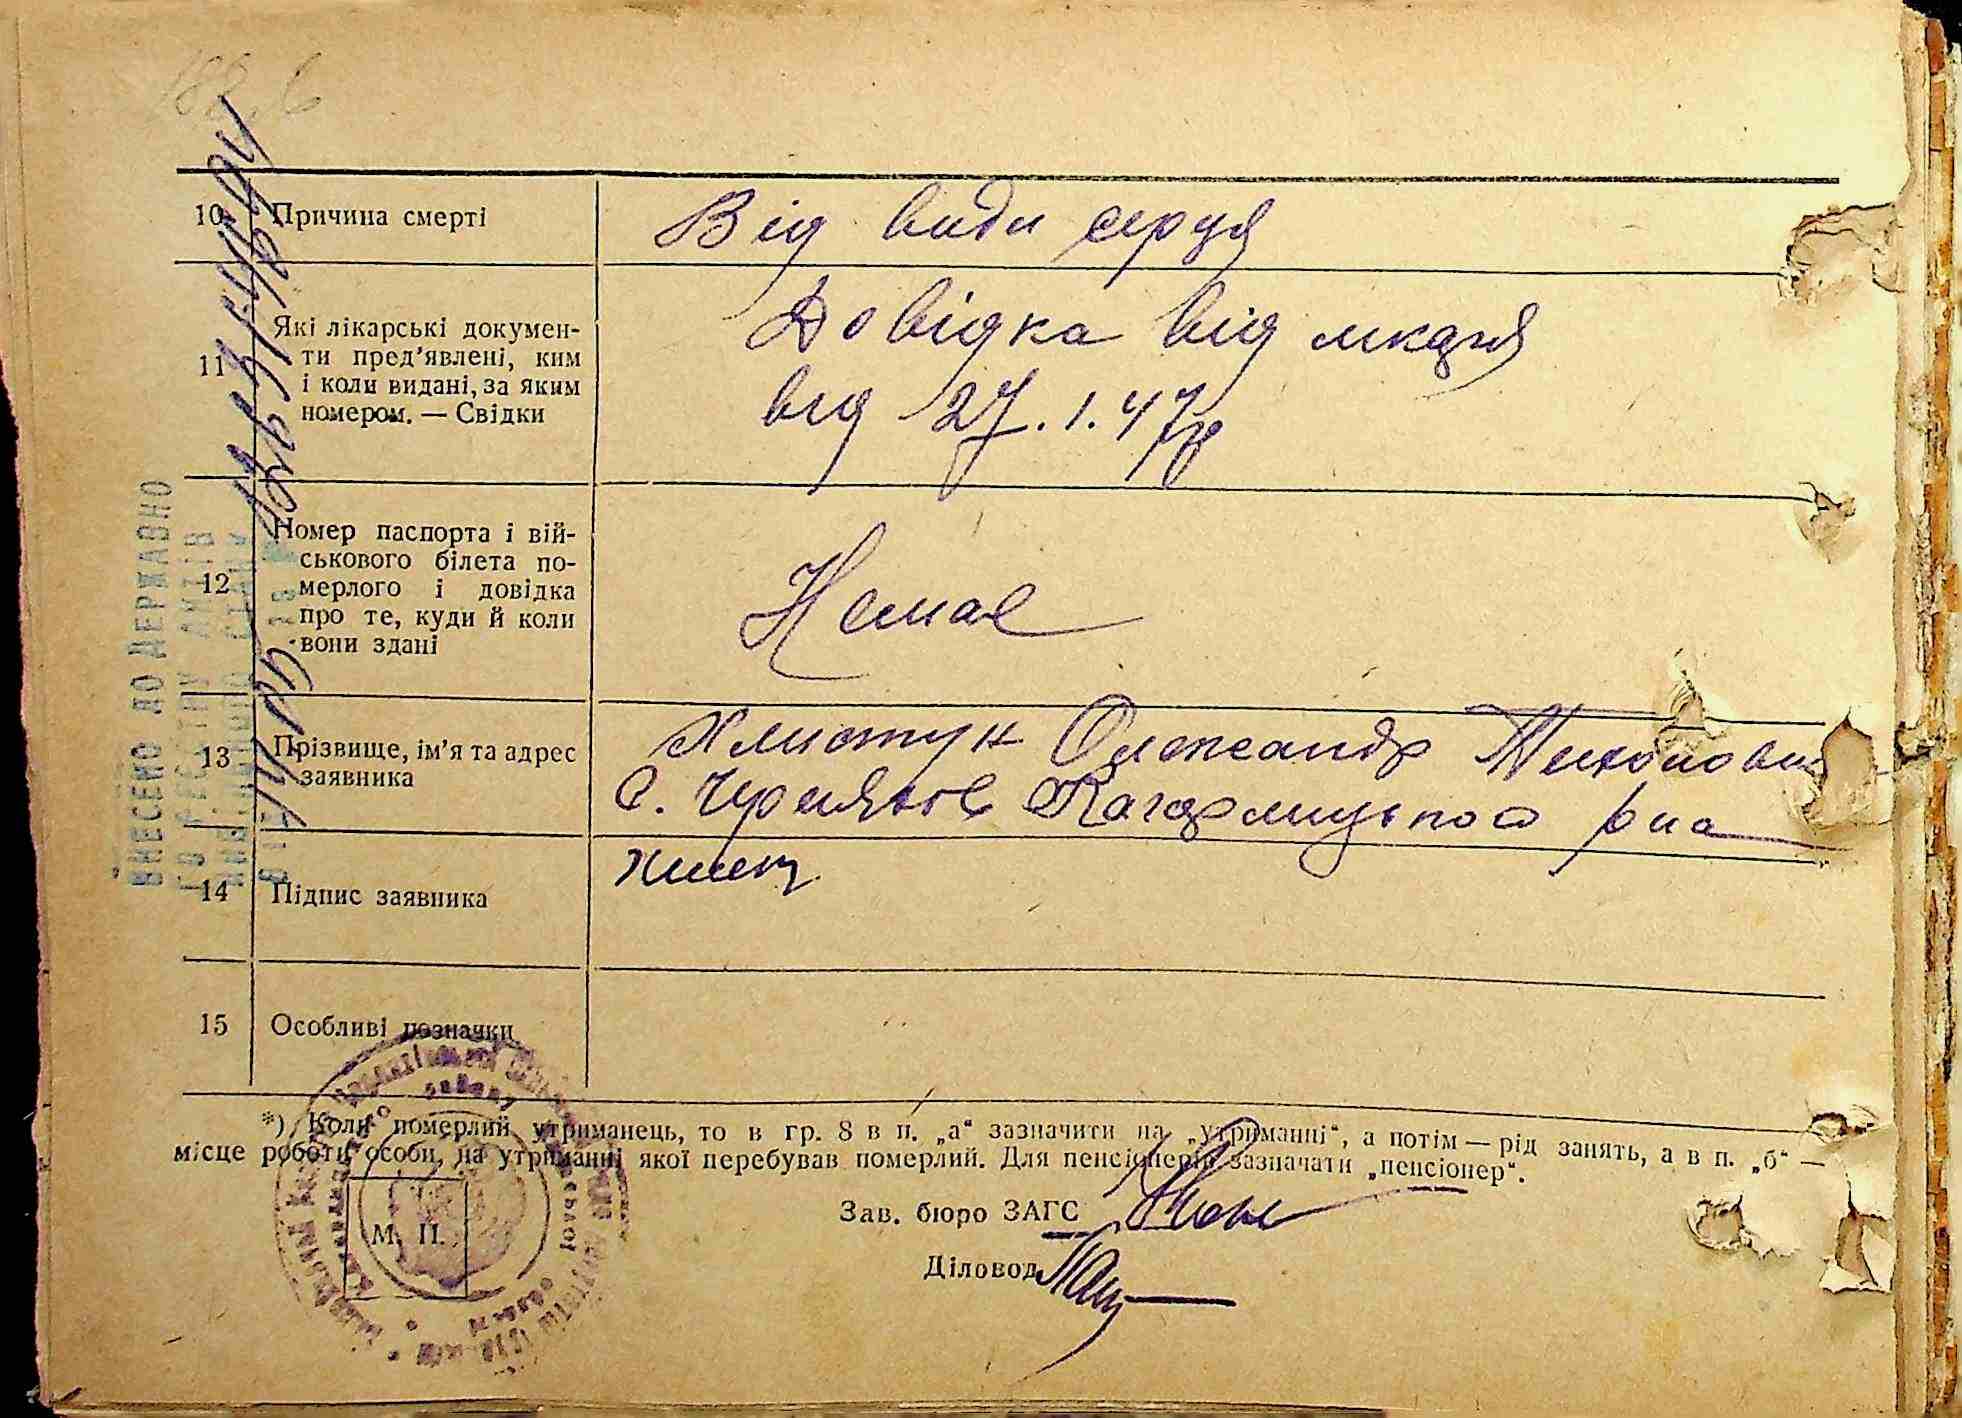 10 Причина смерті Від вади серця
11 Які лікарські докумен-
ти пред'явлені, ким
і коли видані, за яким
номером. — Свідки
Довідка від лікаря
від 27.1.47р
12 Номер паспорта і вій-
ськового білета по-
мерлого і довідка
про те, куди й коли
вони здані
Немає
13 Прізвище, ім'я та адрес
заявника
Хлистук Олександр Тихонович
с. Черняхів Кагарлицького р-на
14 Підпис заявника
15 Особливі позначки
*) Коли померлий утриманець, то в гр. 8 в п. „а“ зазначити на „утриманні“, а потім — рід занять, а в п. „б“ —
місце роботи особи, на утриманні якої перебував померлий. Для пенсіонерів зазначати „пенсіонер“.
Зав. бюро ЗАГС
Діловод
М. П.
ВНЕСЕНО ДО ДЕРЖАВНО
ГО РЕЄСТРУ АКТІВ